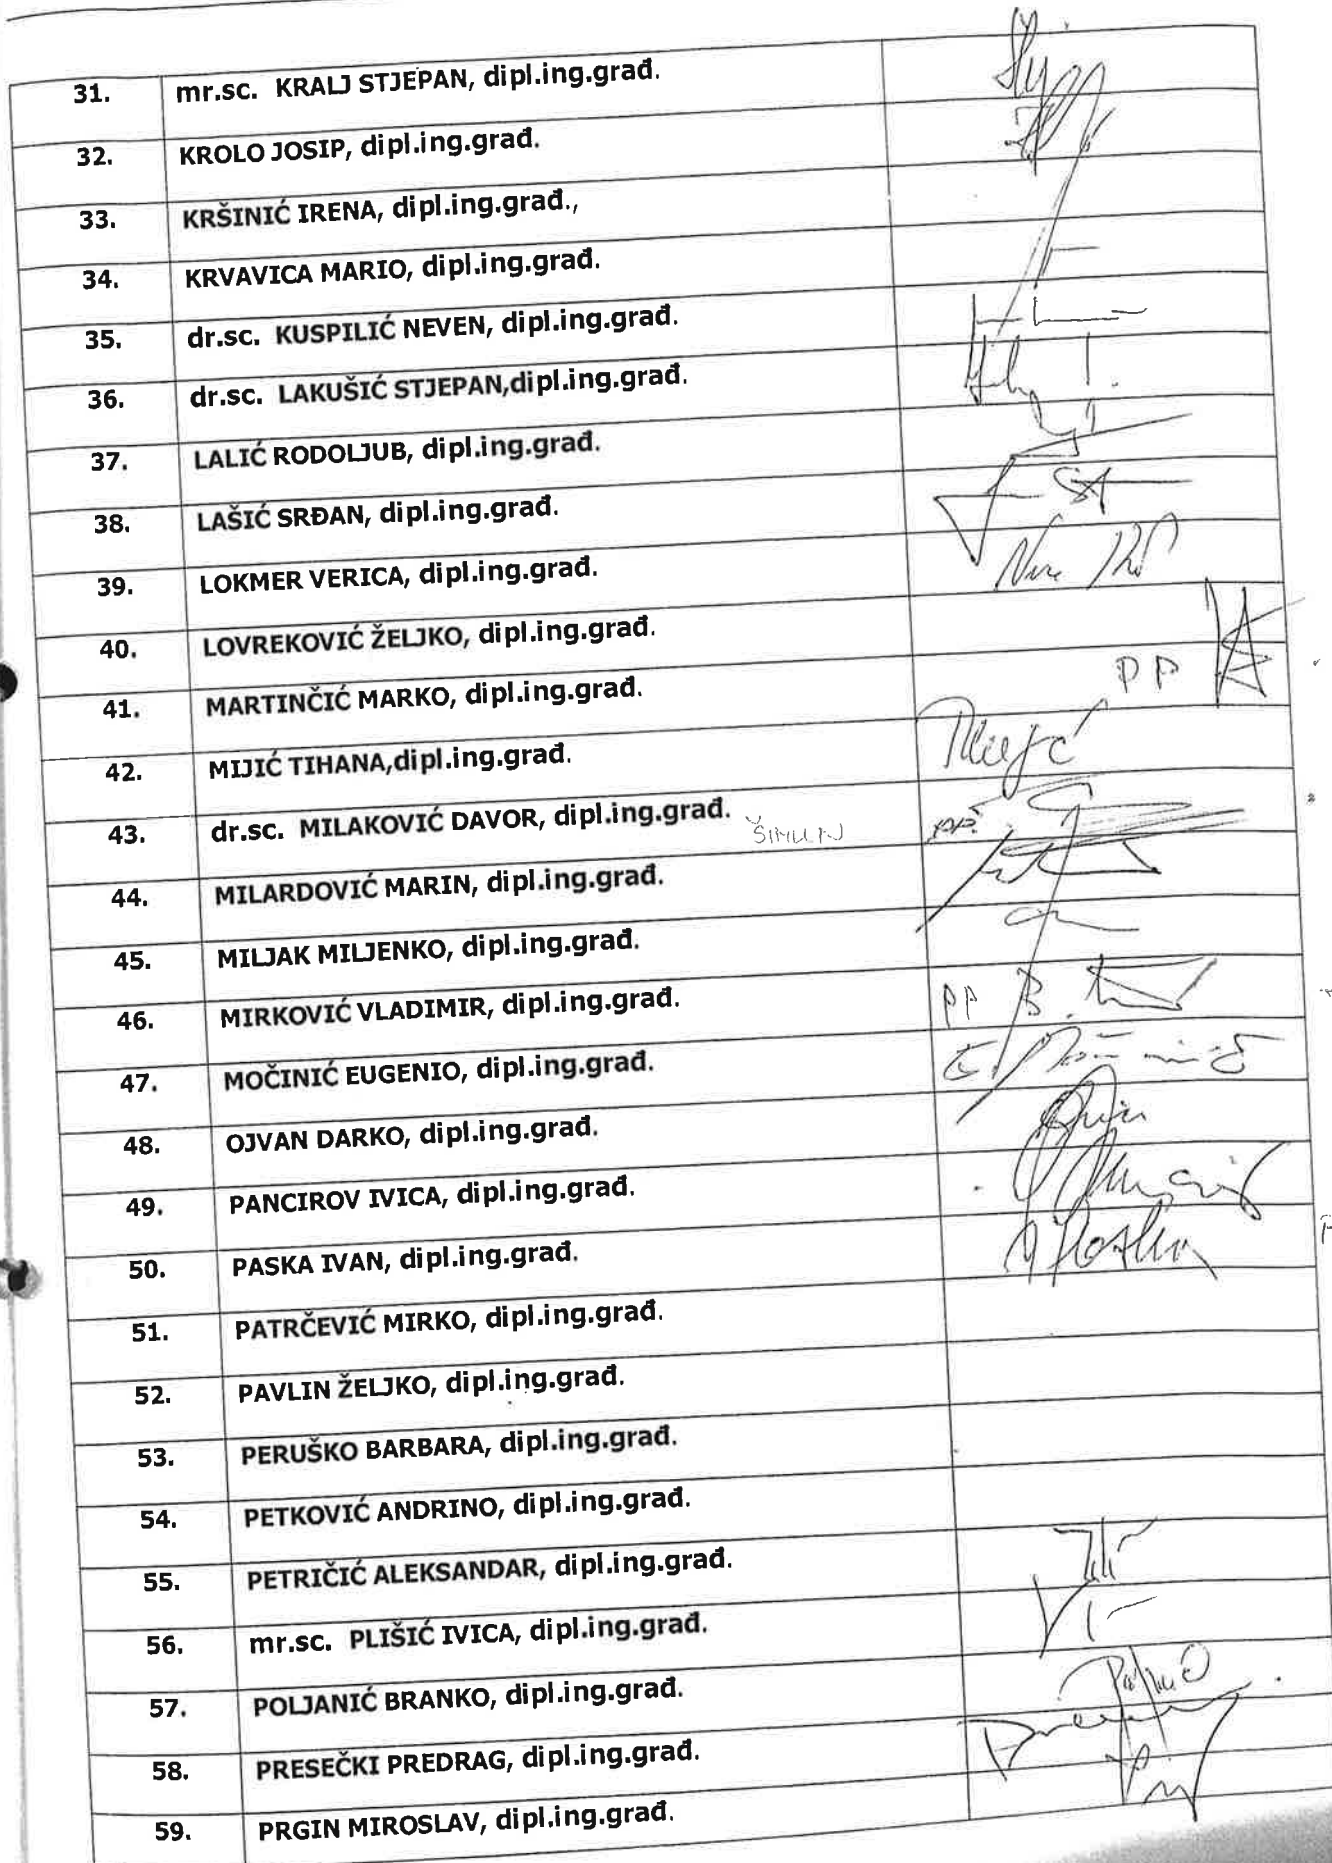 31. mr.sc. KRALJ STJEPAN, dipl.ing.građ.
32. KROLO JOSIP, dipl.ing.građ.
33. KRŠINIĆ IRENA, dipl.ing.građ.,
34. KRVAVICA MARIO, dipl.ing.građ.
35. dr.sc. KUSPILIĆ NEVEN, dipl.ing.građ.
36. dr.sc. LAKUŠIĆ STJEPAN,dipl.ing.građ.
37. LALIĆ RODOLJUB, dipl.ing.građ.
38. LAŠIĆ SRĐAN, dipl.ing.građ.
39. LOKMER VERICA, dipl.ing.građ.
40. LOVREKOVIĆ ŽELJKO, dipl.ing.građ.
41. MARTINČIĆ MARKO, dipl.ing.građ. PP
42. MIJIĆ TIHANA,dipl.ing.građ. Mijić
43. dr.sc. MILAKOVIĆ DAVOR, dipl.ing.građ. ŠIMUN PP.
44. MILARDOVIĆ MARIN, dipl.ing.građ.
45. MILJAK MILJENKO, dipl.ing.građ.
46. MIRKOVIĆ VLADIMIR, dipl.ing.građ. PP B.
47. MOČINIĆ EUGENIO, dipl.ing.građ.
48. OJVAN DARKO, dipl.ing.građ.
49. PANCIROV IVICA, dipl.ing.građ.
50. PASKA IVAN, dipl.ing.građ.
51. PATRČEVIĆ MIRKO, dipl.ing.građ.
52. PAVLIN ŽELJKO, dipl.ing.građ.
53. PERUŠKO BARBARA, dipl.ing.građ.
54. PETKOVIĆ ANDRINO, dipl.ing.građ.
55. PETRIČIĆ ALEKSANDAR, dipl.ing.građ.
56. mr.sc. PLIŠIĆ IVICA, dipl.ing.građ.
57. POLJANIĆ BRANKO, dipl.ing.građ.
58. PRESEČKI PREDRAG, dipl.ing.građ.
59. PRGIN MIROSLAV, dipl.ing.građ.